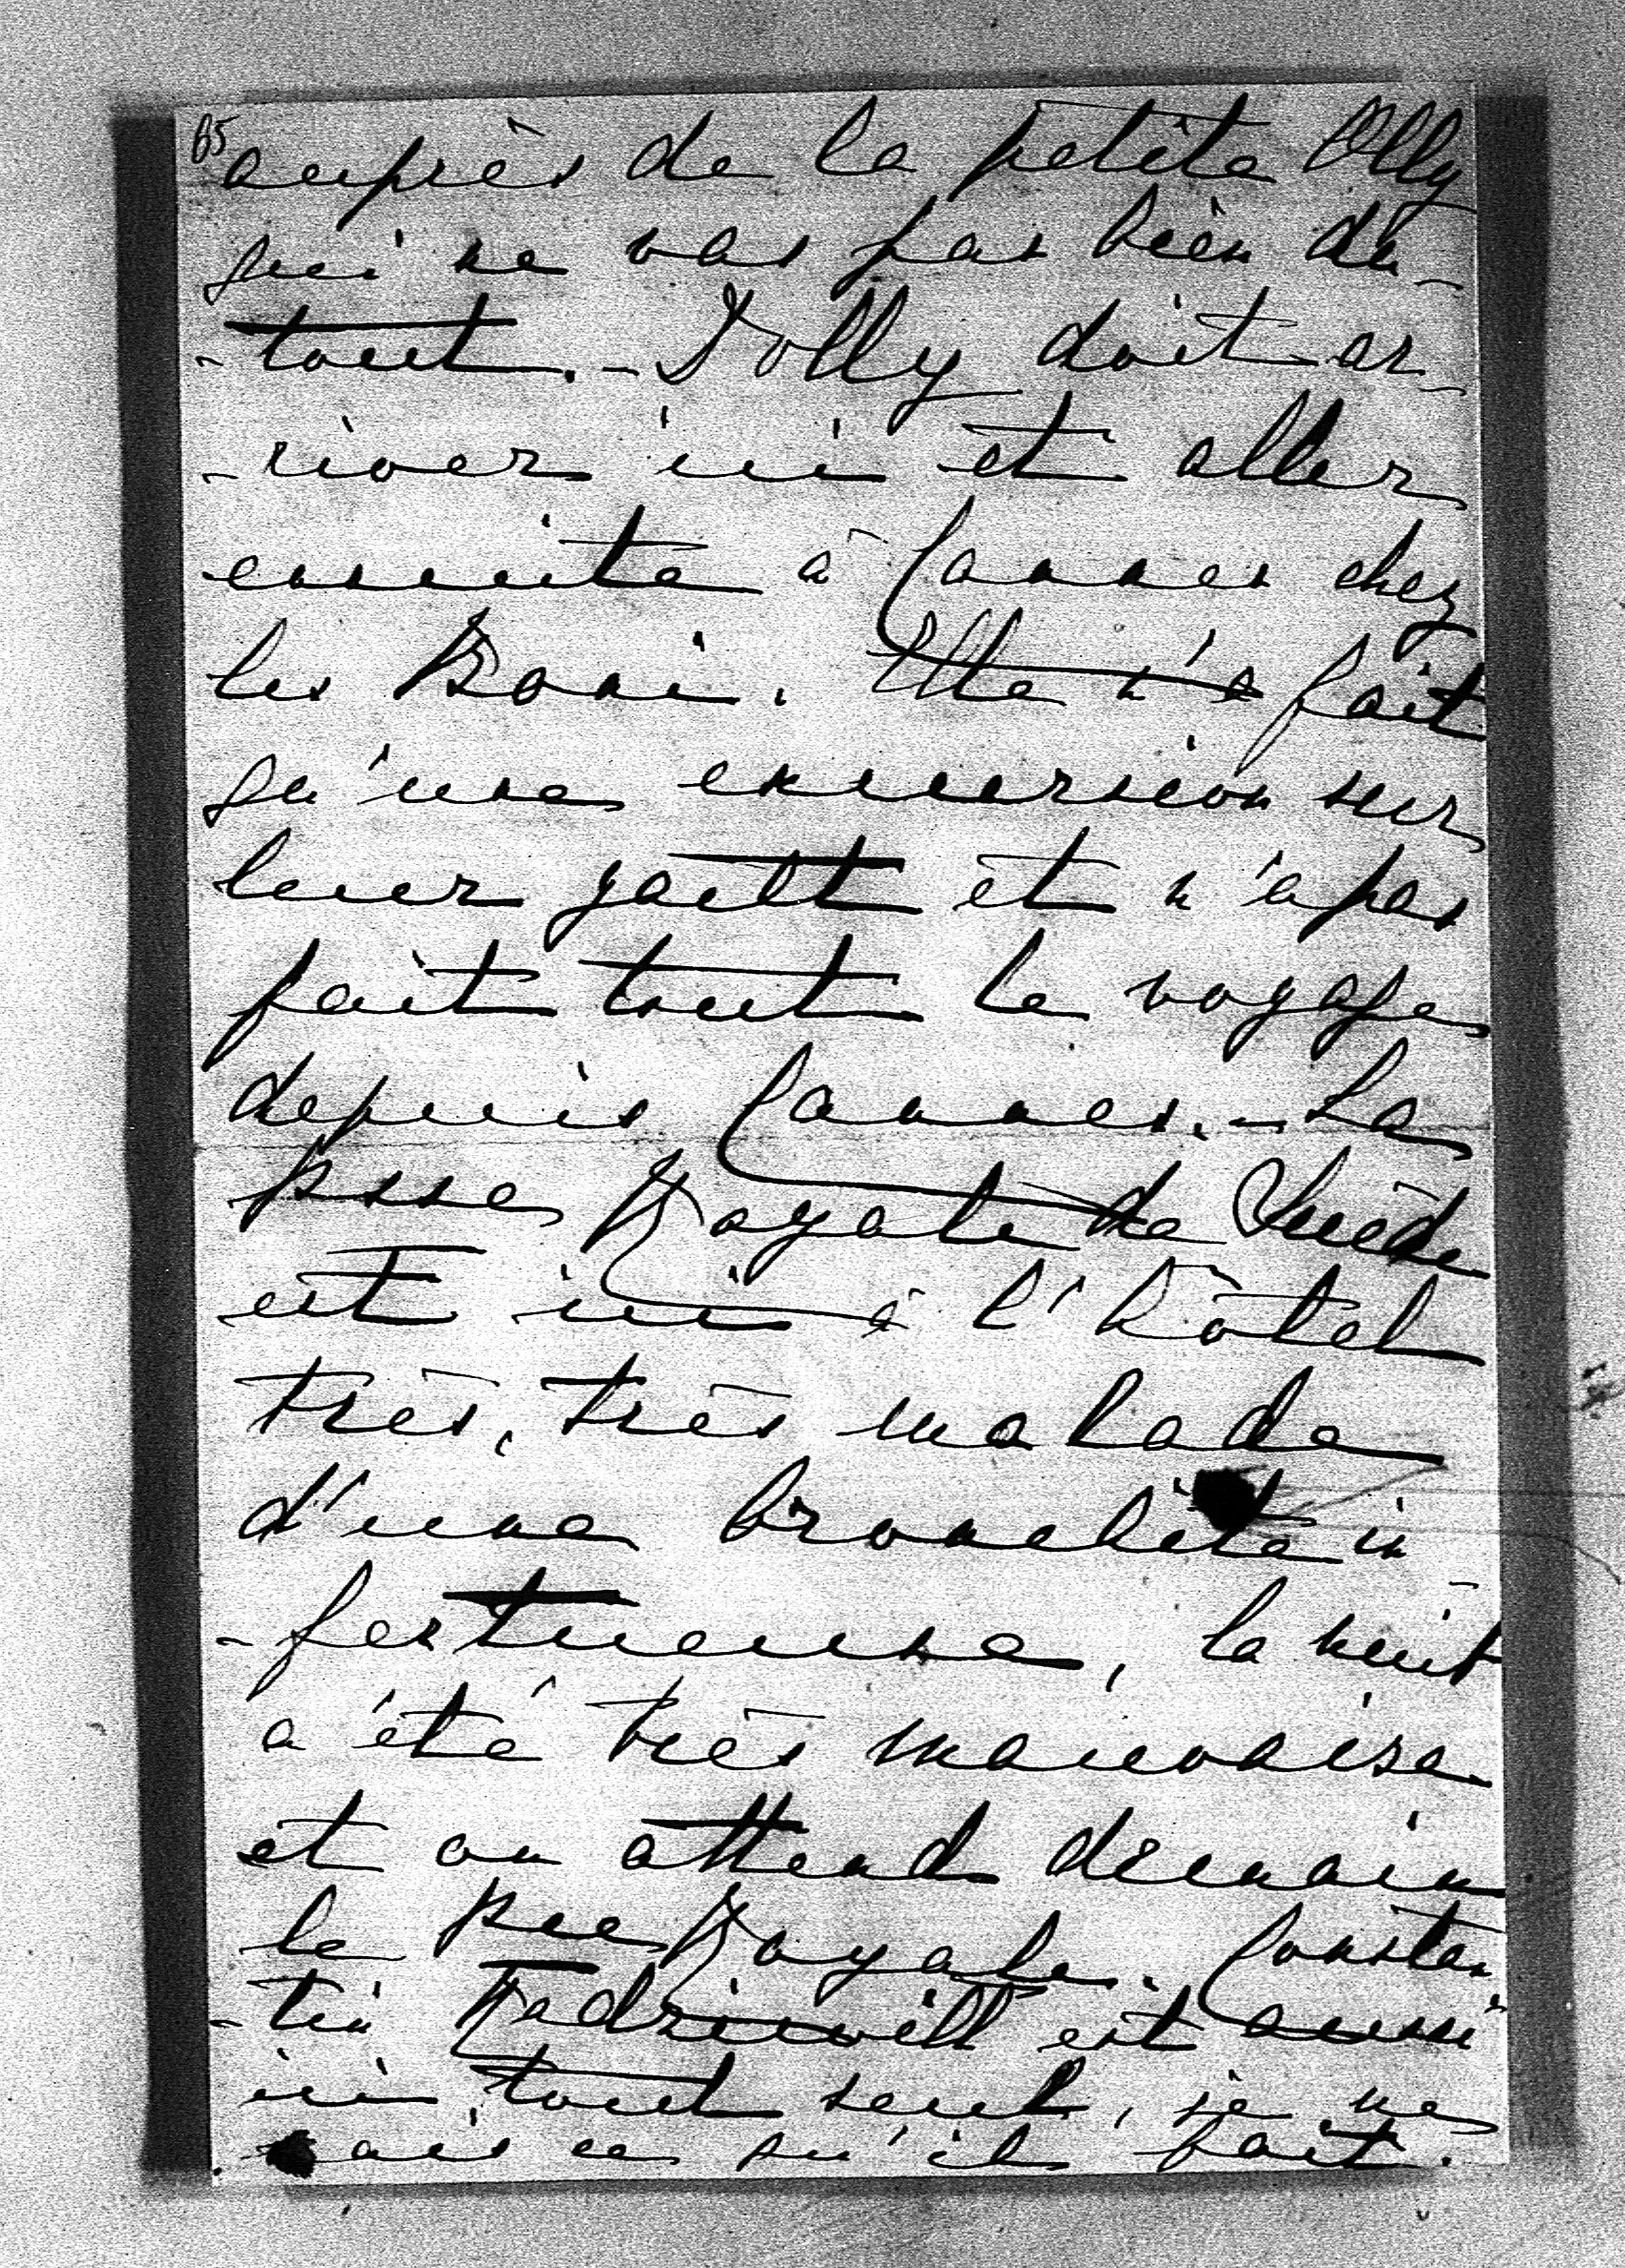 65
auprès de la petite Olly
qui ne vas pas bien du-
-tout. - Dolly doit ar-
-river ici et aller
ensuite à Cannes chez
les Boni. Elle n'a fait
qu'une excursion sur
leur yacht et n'a pas
fait tout le voyage
depuis Cannes. - La
Psse Royale de Suède
est ici à l'hôtel
très, très malade
d'une bronchite in
-fectueuse, la nuit
a été très mauvaise
et on attend demain
le Pce Royale. Constan
-tin Radziwill est aussi
ici tout seul, je ne
sais ce qu'il fait.